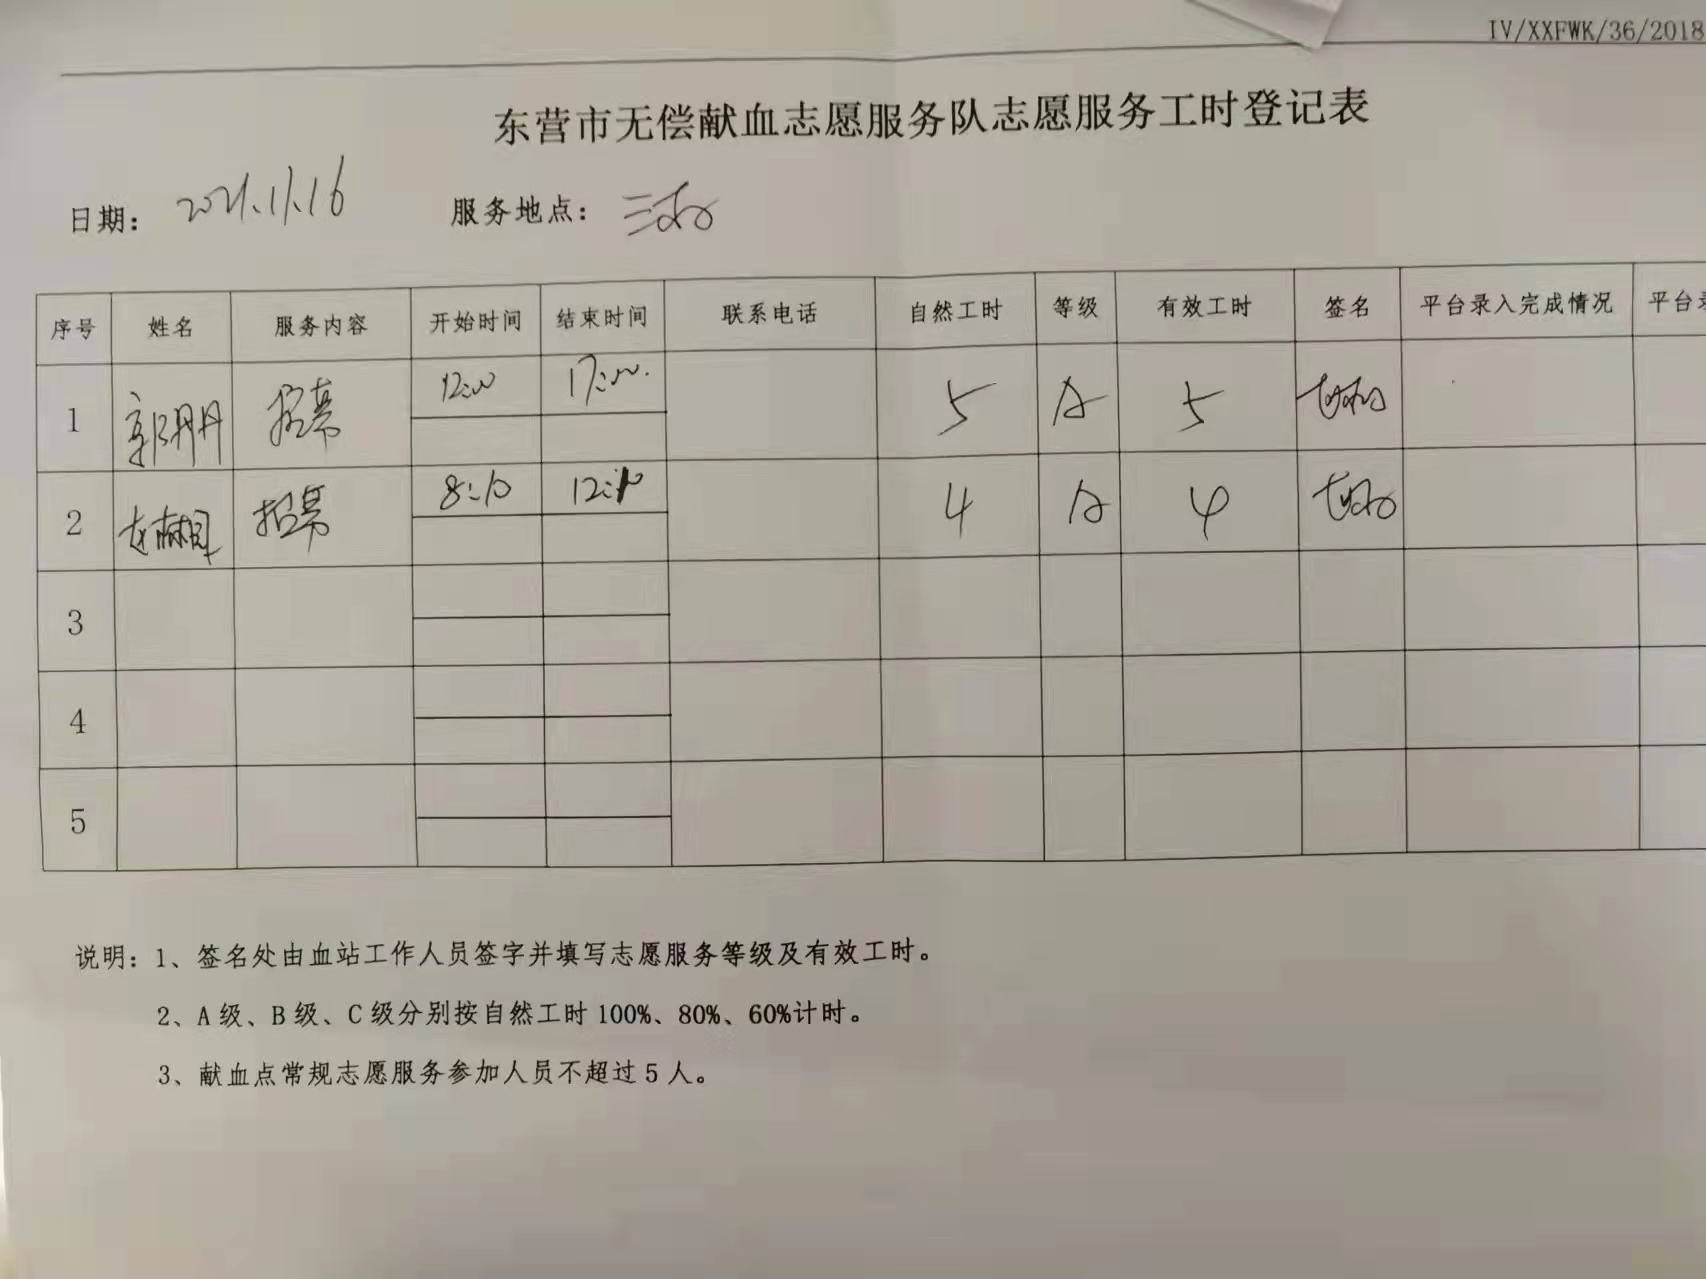 IV/XXFWK/36/2018
东营市无偿献血志愿服务队志愿服务工时登记表
日期： 2021.11.16 服务地点：
序号 姓名 服务内容 开始时间 结束时间 联系电话 自然工时 等级 有效工时 签名 平台录入完成情况 平台录
1 郭丹丹 招募 12:00 17:00. 5 A 5
2 招募 8:10 4 A 4
3
4
5
说明：1、签名处由血站工作人员签字并填写志愿服务等级及有效工时。
2、A级、B级、C级分别按自然工时100%、80%、60%计时。
3、献血点常规志愿服务参加人员不超过5人。